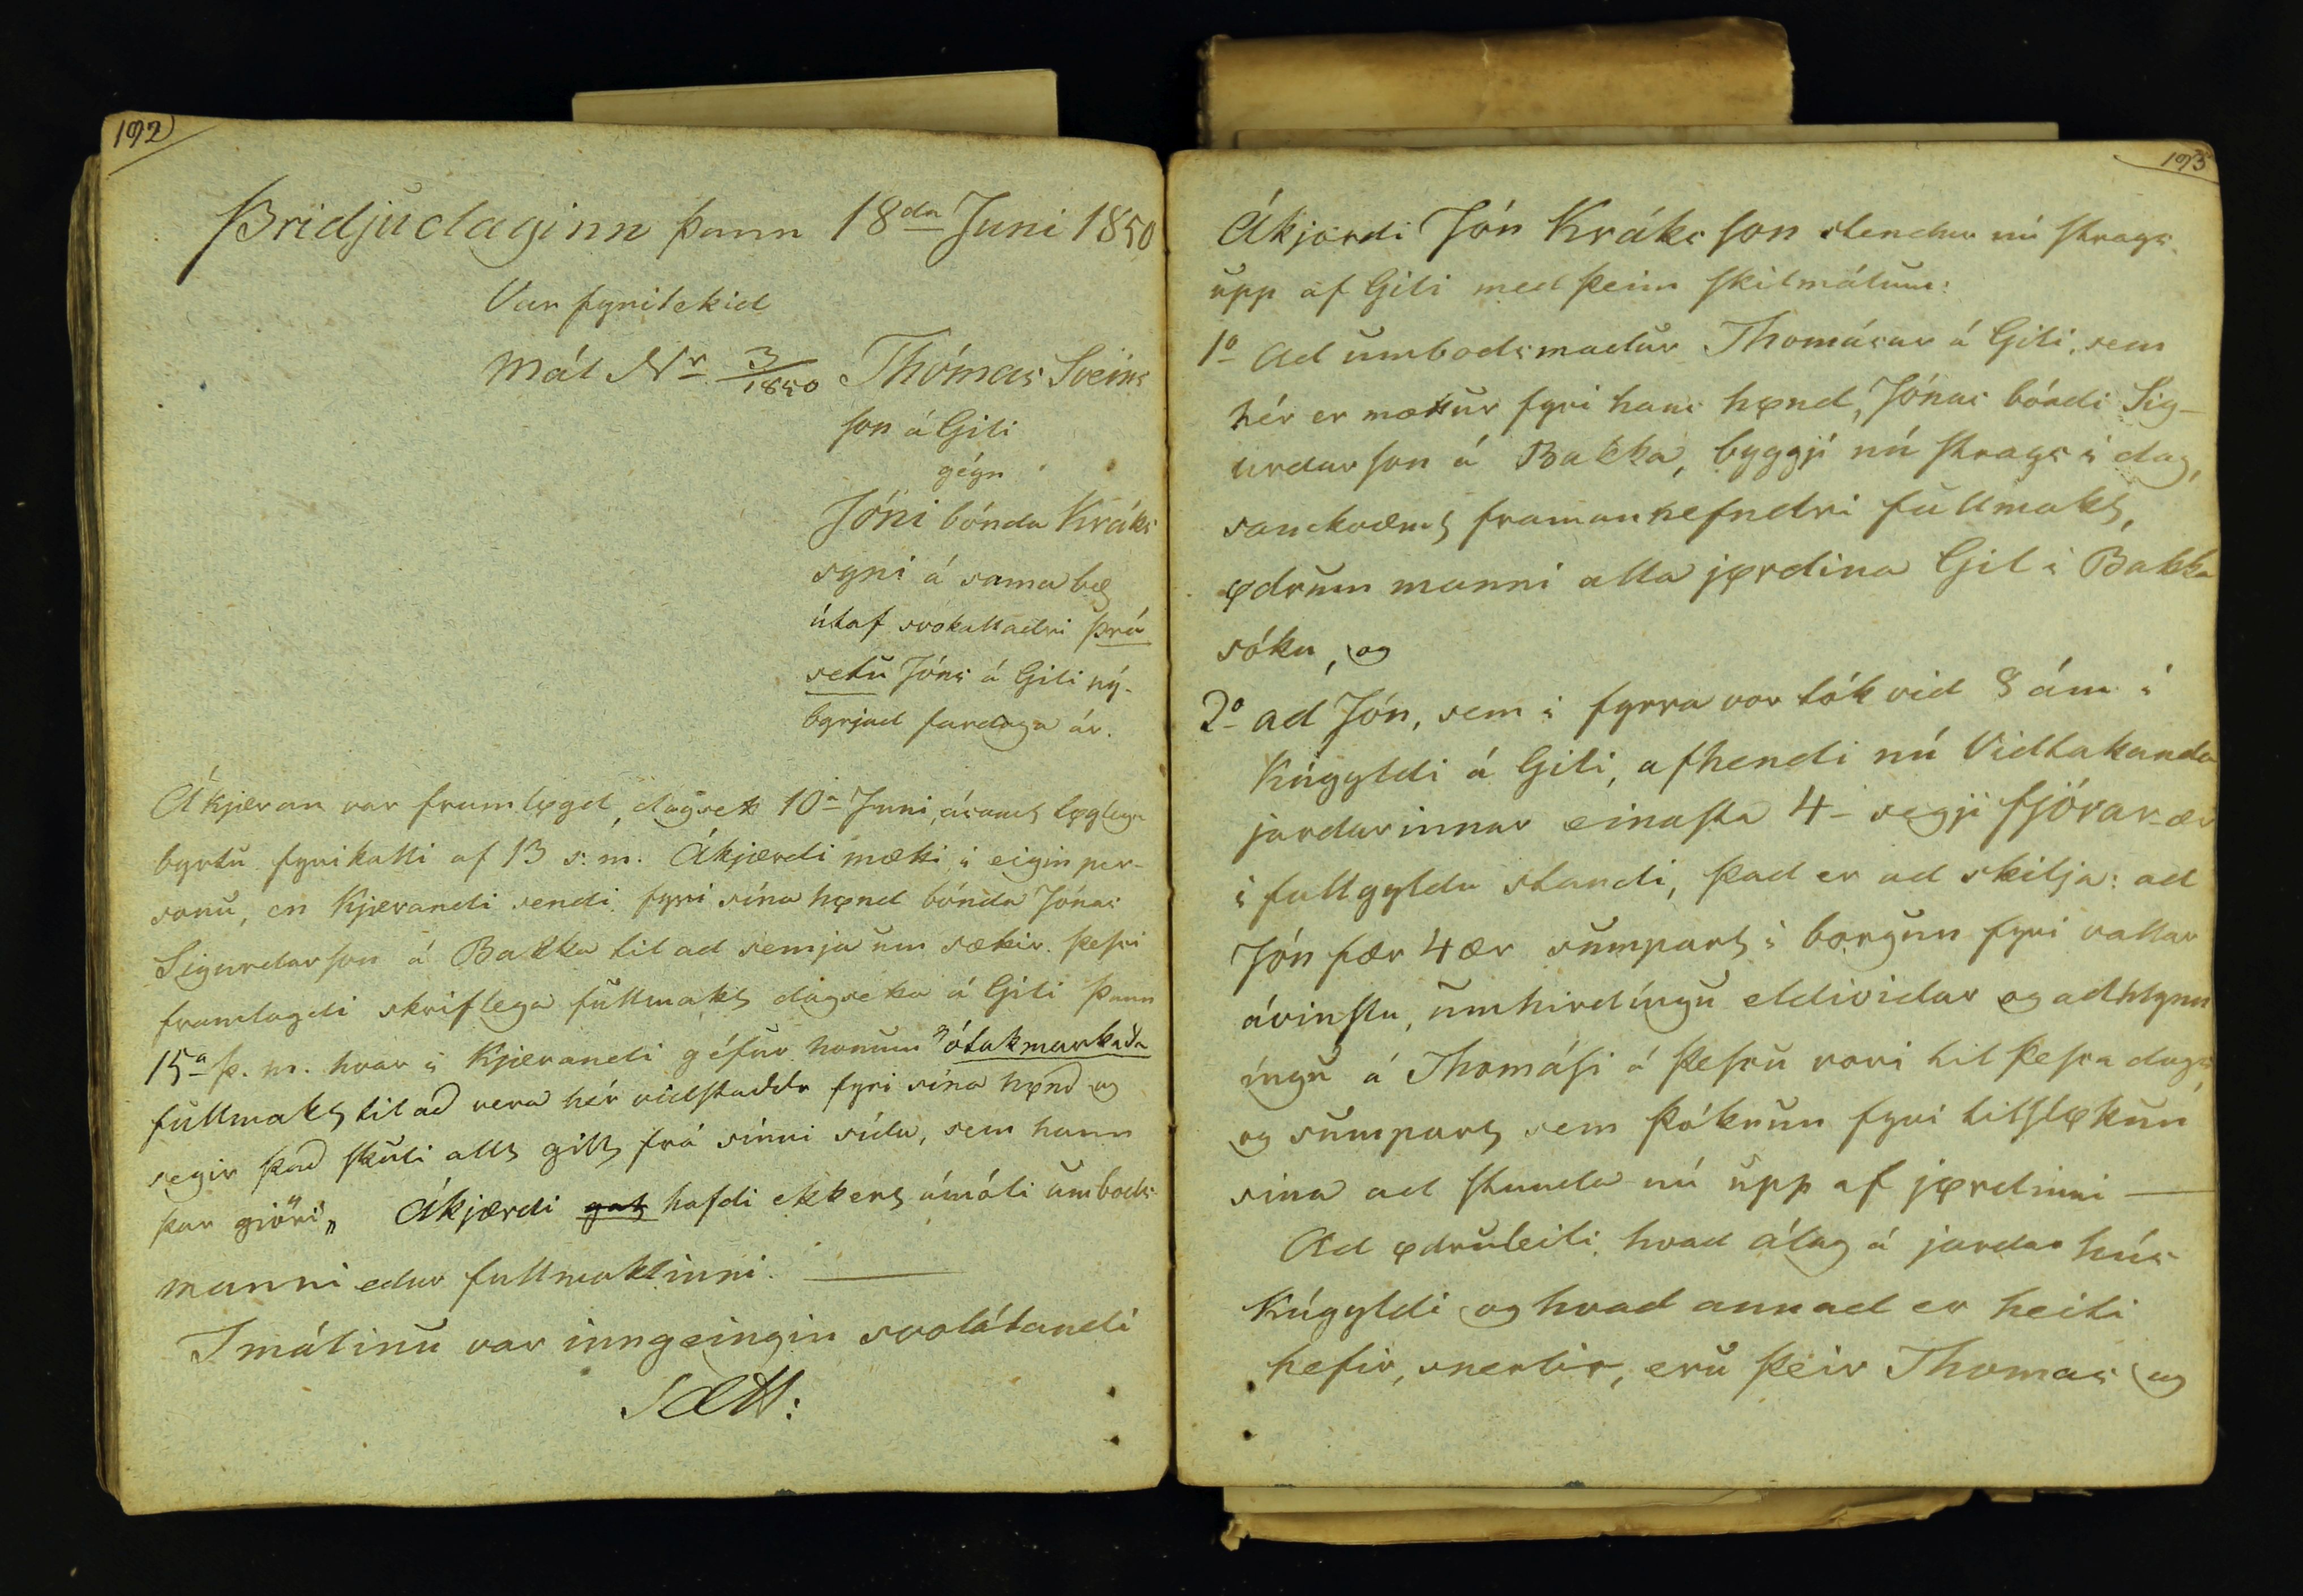 192
Þridjudaginn þann 18da Juni 1850
Var fyritekid
Mál Nr 3/1850 Thómas Sveins
son á Gili
gégn
Jóni bónda Kráks
syni á sama bæ
útaf svokallaðri þrá
setu Jóns á Gili ný-
byrjad fardaga ár.
Ákjæran var framløgd, dagsett 10a Juni, ásamt løglega
byrtu fyrikalli af 13 s. m. Ákjærdi mætti i eigin per-
sonu, en Kjærandi sendi fyri sina hønd bónda Jónas
Sigurdarson á Bakka til ad semja um sættir. Þessi
framlagdi skriflega fullmakt dagsetta á Gili þann
15a þ. m. hvar i Kjærandi géfur honum "ótakmarkada
fullmakt til að vera hér vidstaddr fyri sina hønd og
segir það skuli allt gillt frá sinni sidu, sem hann
þar giöri„ Ákjærdi gat hafdi ekkert ámóti umbods
manni edur fullmaktinni. —
I málinu var inngeingin svolátandi
Sætt:
193
Ákjærdi Jón Kráksson stendur nú strags
upp af Gili med þeim skilmálum:
1o Ad umbodsmadur Thomásar á Gili, sem
hér er mættur fyri hans hønd, Jónas bóndi Sig-
urdarson á Bakka, byggji nú strags i dag,
samkvæmt framannefndri fullmakt,
ødrum manni alla jørdina Gil i Bakka
sókn, og
2o ad Jón, sem i fyrra vor tók vid 8 ám i
Kúgyldi á Gili, afhendi nú Vidtakanda
jardarinnar einasta 4 - segji fjórar - ær
i fullgyldu standi, það er ad skilja: ad
Jón fær 4 ær sumpart i borgun fyri vallar
ávinslu, umhirdingu eldividar og adhlynn
ingu á Thomási á þessu vori til þessa dags,
og sumpart sem þóknun fyri tilsløkun
sina ad standa nú upp af jørdinni —
Ad ødruleiti, hvad álag á jardar hús
Kúgyldi og hvad annad er heiti
hefir, snertir, eru þeir Thomas og